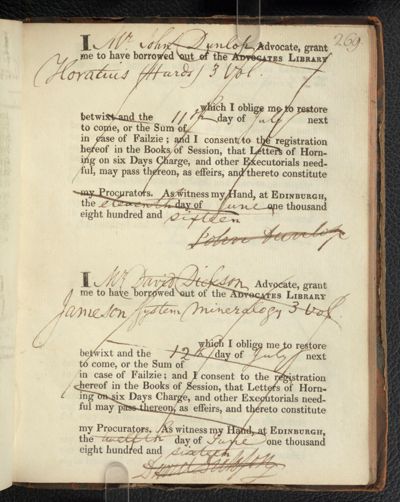 269
I Mr John Dunlop Advocate, grant
me to have borrowed out of the ADVOCATES LIBRARY
Horatius Hurds 3 Vol.
which I oblige me to restore
betwixt and the 11th day of July next
to come, or the Sum of
in case of Failzie; and I consent to the registration
hereof in the Books of Session, that Letters of Horn-
ing on six Days Charge, and other Executorials need-
ful, may pass thereon, as effeirs, and thereto constitute
my Procurators. As witness my Hand, at EDINBURGH,
the eleventh day of June one thousand
eight hundred and sixteen
John Dunlop
I Mr David Dickson Advocate, grant
me to have borrowed out of the ADVOCATES LIBRARY
Jameson System Mineralogy 3 Vol.
which I oblige me to restore
betwixt and the 12th day of July next
to come, or the Sum of
in case of Failzie; and I consent to the registration
hereof in the Books of Session, that Letters of Horn-
ing on six Days Charge, and other Executorials need-
ful may pass thereon, as effeirs, and thereto constitute
my Procurators. As witness my Hand, at EDINBURGH,
the twelfth day of June one thousand
eight hundred and sixteen
David Dickson